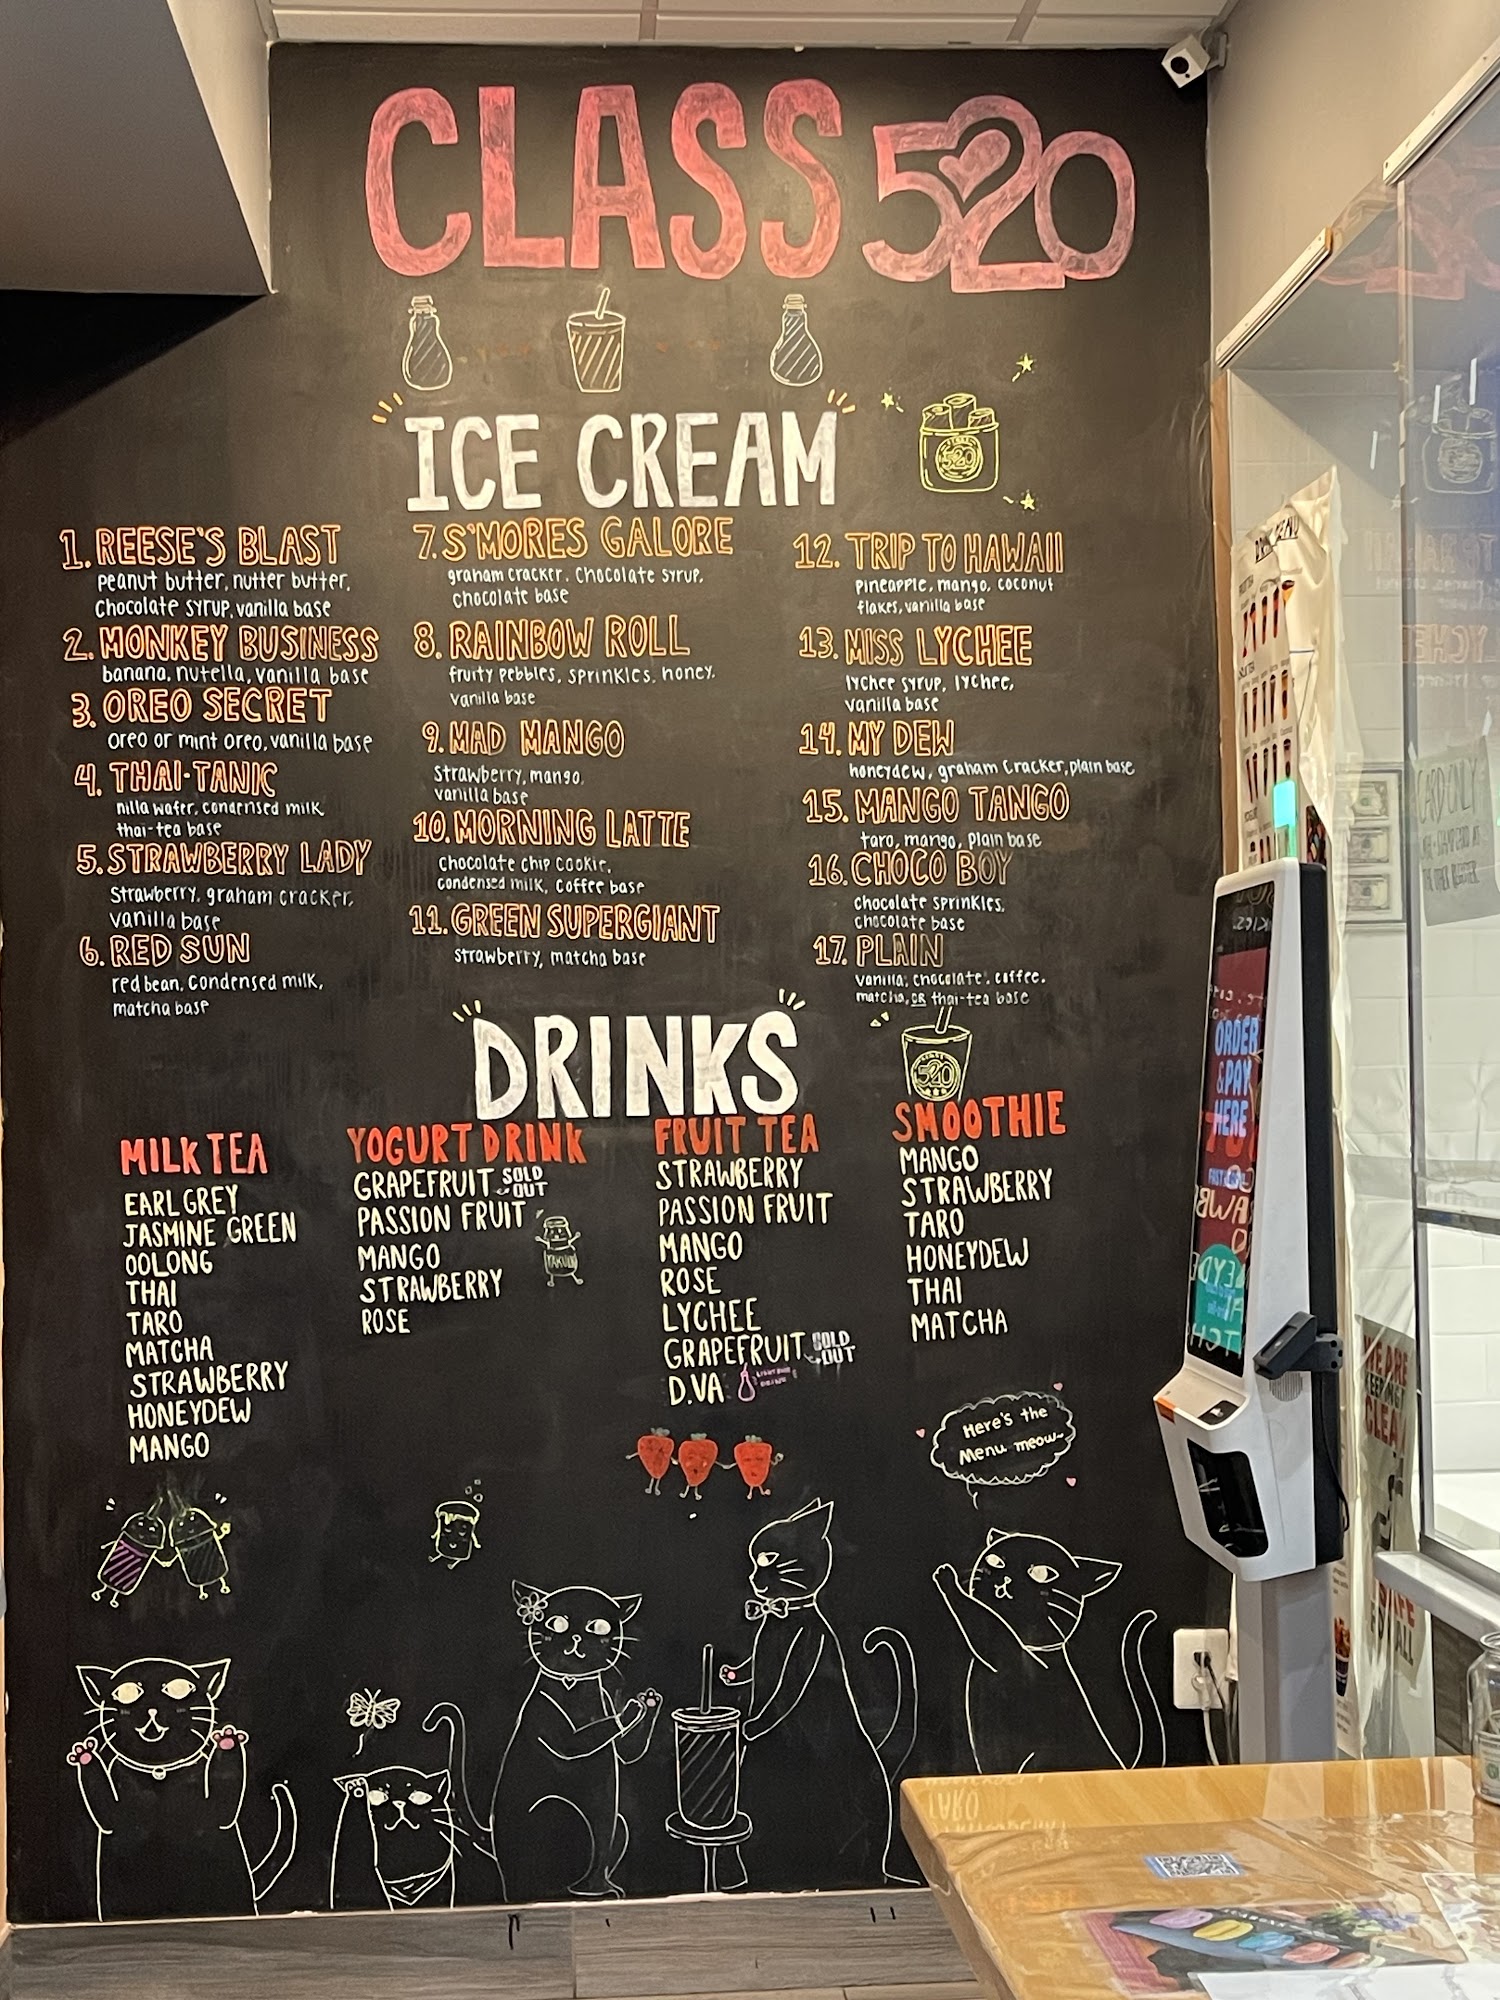 CLASS 520
ICE CREAM
520
1. REESE'S BLAST
peanut butter, nutter butter,
chocolate syrup, vanilla base
2. MONKEY BUSINESS
banana, nutella, vanilla base
3. OREO SECRET
oreo or mint oreo, vanilla base
4. THAI-TANIC
nilla wafer, condensed milk
thai-tea base
5. STRAWBERRY LADY
strawberry, graham cracker,
vanilla base
6. RED SUN
red bean, condensed milk,
matcha base
7. S'MORES GALORE
graham cracker, chocolate syrup,
chocolate base
8. RAINBOW ROLL
fruity pebbles, sprinkles, honey,
vanilla base
9. MAD MANGO
strawberry, mango,
vanilla base
10. MORNING LATTE
chocolate chip cookie,
condensed milk, coffee base
11. GREEN SUPERGIANT
strawberry, matcha base
12. TRIP TO HAWAII
pineapple, mango, coconut
flakes, vanilla base
13. MISS LYCHEE
lychee syrup, lychee,
vanilla base
14. MY DEW
honeydew, graham cracker, plain base
15. MANGO TANGO
taro, mango, plain base
16. CHOCO BOY
chocolate sprinkles,
chocolate base
17. PLAIN
vanilla, chocolate, coffee,
matcha, OR thai-tea base
DRINKS
520
MILK TEA
EARL GREY
JASMINE GREEN
OOLONG
THAI
TARO
MATCHA
STRAWBERRY
HONEYDEW
MANGO
YOGURT DRINK
GRAPEFRUIT SOLD OUT
PASSION FRUIT
MANGO
STRAWBERRY
ROSE
FRUIT TEA
STRAWBERRY
PASSION FRUIT
MANGO
ROSE
LYCHEE
GRAPEFRUIT SOLD OUT
D.VA
SMOOTHIE
MANGO
STRAWBERRY
TARO
HONEYDEW
THAI
MATCHA
Here's the
Menu meow~
ORDER
& PAY
HERE
CARD ONLY
WE ARE
KEEPING